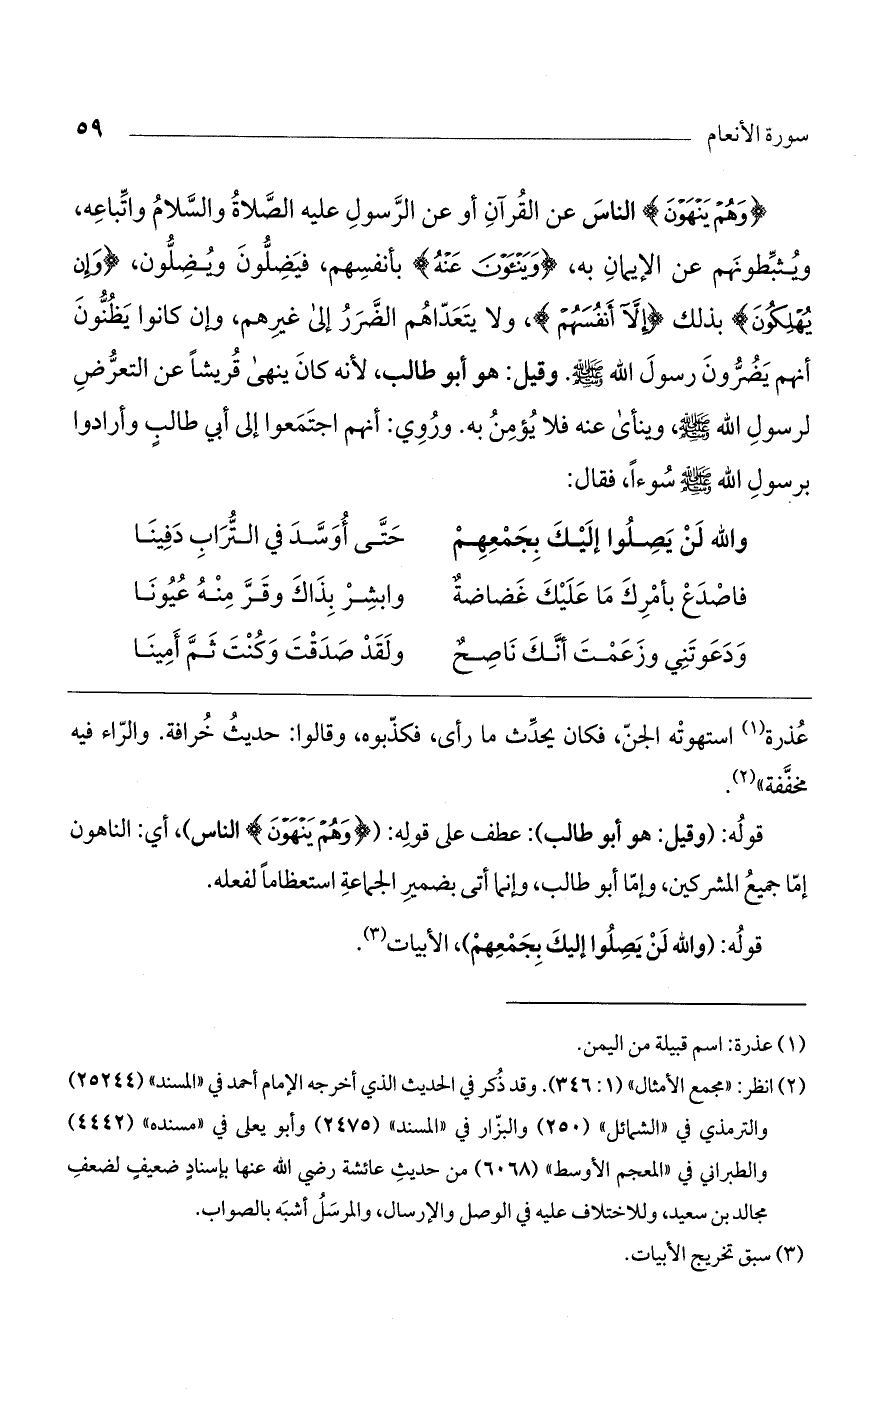 سورة الأنعام ٥٩
﴿وَهُمْ يَنْهَوْنَ﴾ الناسَ عن القُرآنِ أو عن الرَّسولِ عليه الصَّلاةُ والسَّلامُ واتِّباعِه،
ويُثبِّطونَهم عن الإيمانِ به، ﴿وَيَنْـَٔوْنَ عَنْهُ﴾ بأنفسِهم، فيَضِلُّونَ ويُضِلُّون، ﴿وَإِن
يُهْلِكُونَ﴾ بذلك ﴿إِلَّآ أَنفُسَهُمْ﴾، ولا يتَعَدّاهُم الضَّرَرُ إلىٰ غيرِهم، وإن كانوا يَظُنُّونَ
أنهم يَضُرُّونَ رسولَ الله ﷺ. وقيل: هو أبو طالب، لأنه كانَ ينهىٰ قُريشاً عن التعرُّضِ
لرسولِ الله ﷺ، وينأىٰ عنه فلا يُؤمِنُ به. ورُوِي: أنهم اجتَمَعوا إلى أبي طالبٍ وأرادوا
برسولِ الله ﷺ سُوءاً، فقال:
والله لَنْ يَصِلُوا إلَيْكَ بِجَمْعِهِمْ حَتَّى أُوَسَّدَ في التُّرَابِ دَفِينَا
فاصْدَعْ بأمْرِكَ مَا عَلَيْكَ غَضاضةٌ وابشِرْ بِذَاكَ وقَرَّ مِنْهُ عُيُونَا
وَدَعَوتَنِي وزَعَمْتَ أنَّكَ نَاصِحٌ ولَقَدْ صَدَقْتَ وَكُنْتَ ثَمَّ أَمِينَا
عُذرة(١) استهوتْه الجنّ، فكان يحدِّث ما رأى، فكذّبوه، وقالوا: حديثُ خُرافة. والرّاء فيه
مخفَّفة»(٢).
قولُه: (وقيل: هو أبو طالب): عطف على قولِه: (﴿وَهُمْ يَنْهَوْنَ﴾ الناس)، أي: الناهون
إمّا جميعُ المشركين، وإمّا أبو طالب، وإنما أتى بضميرِ الجماعةِ استعظاماً لفعله.
قولُه: (والله لَنْ يَصِلُوا إليكَ بِجَمْعِهمْ)، الأبيات(٣).
(١) عذرة: اسم قبيلة من اليمن.
(٢) انظر: «مجمع الأمثال» (١: ٣٤٦). وقد ذُكر في الحديث الذي أخرجه الإمام أحمد في «المسند» (٢٥٢٤٤)
والترمذي في «الشمائل» (٢٥٠) والبزّار في «المسند» (٢٤٧٥) وأبو يعلى في «مسنده» (٤٤٤٢)
والطبراني في «المعجم الأوسط» (٦٠٦٨) من حديثِ عائشة رضي الله عنها بإسنادٍ ضعيفٍ لضعفِ
مجالد بن سعيد، وللاختلاف عليه في الوصل والإرسال، والمرسَلُ أشبَه بالصواب.
(٣) سبق تخريج الأبيات.